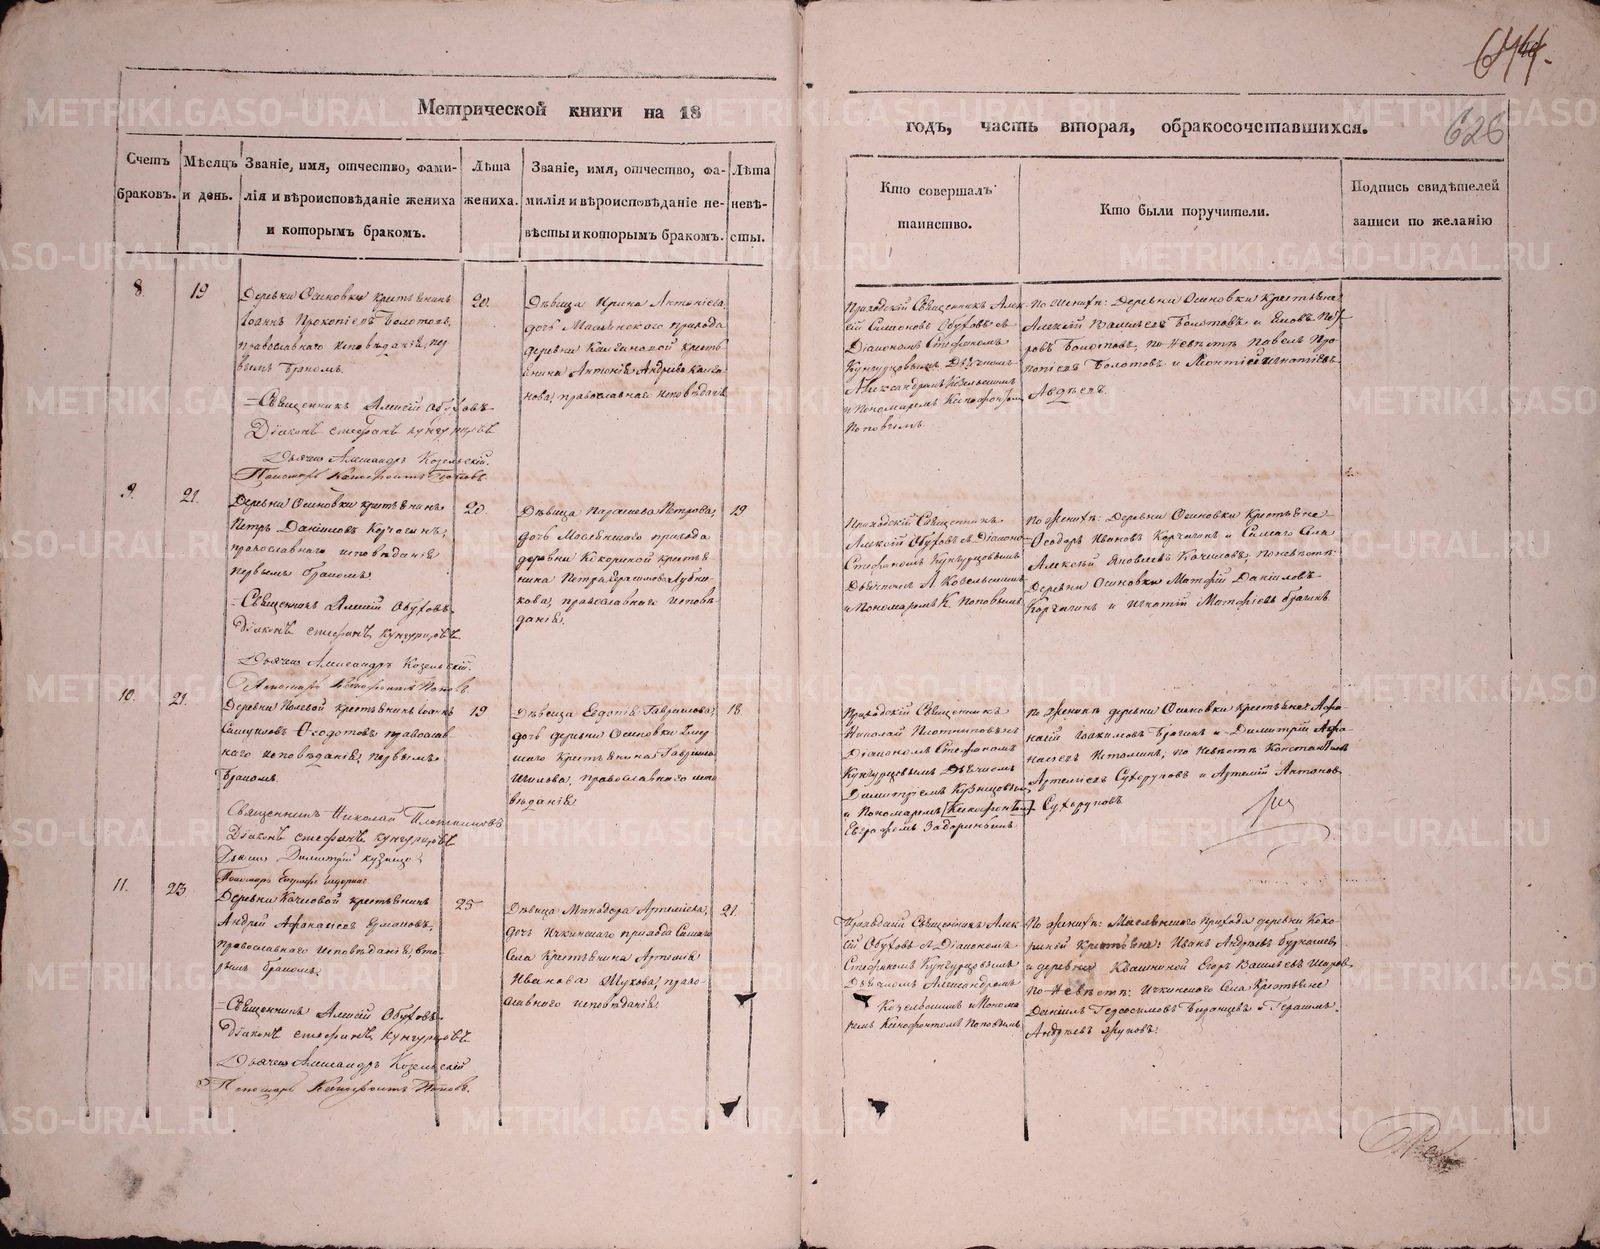 644.
626
Метрической книги на 18
годъ, часть вторая, обракосочетавшихся.
Счетъ браковъ.
Мѣсяцъ и день.
Званіе, имя, отчество, фами-
лія и вѣроисповѣданіе жениха
и которымъ бракомъ.
Лѣта
жениха.
Званіе, имя, отчество, фа-
милія и вѣроисповѣданіе не-
вѣсты и которымъ бракомъ.
Лѣта
невѣ-
сты.
Кто совершалъ
таинство.
Кто были поручители.
Подпись свидѣтелей
записи по желанію
8
19
Деревни Осиновки крестьянинъ
Іоаннъ Прокопіевъ Болотовъ,
православнаго исповѣданія, пер
вымъ бракомъ.
Священникъ Алексій Обуховъ
Діаконъ Стефанъ Кунгурцовъ
Дьячекъ Александръ Козельскій.
Пономарь Ксенофонтъ Поповъ.
20.
Дѣвица Ирина Антоніева,
дочь Маслянскаго прихода
деревни
крестья
нина Антонія Андреева
православнаго исповѣданія
Приходскій Священникъ Алек
сій Симеоновъ Обуховъ съ
Діакономъ Стефаномъ
Кунгурцовымъ Дьячкомъ
Александромъ Козельскимъ
и Пономаремъ Ксенофонтом
Поповымъ
По женихѣ: Деревни Осиновки крестьяне
Алексій Васильевъ Болотовъ и
Болотовъ, по невѣстѣ Павелъ Про
копіевъ Болотовъ и Игнатіевъ
Авдѣевъ.
9.
21.
Деревни Осиновки крестьянинъ
Петръ Даниловъ Корчагинъ,
православнаго исповѣданія
первымъ бракомъ.
Священникъ Алексій Обуховъ
Діаконъ Стефанъ Кунгурцовъ
Дьячекъ Александръ Козельскій.
Пономарь Ксенофонтъ Поповъ
20.
Дѣвица Параскева Петрова,
дочь Маслянскаго прихода
деревни Кокориной крестья
нина Петра Герасимова Дубни
кова, православнаго исповѣ
данія.
19
Приходскій Священникъ
Алексій Обуховъ съ Діаконо
Стефаномъ Кунгурцовымъ
Дьячкомъ А Козельскимъ
и Пономаремъ К. Поповымъ
По женихѣ: Деревни Осиновки Крестьяне
Ѳеодоръ Ивановъ Корчагинъ и Самаго Села
Алексѣй Яковлевъ Качиловъ; по невѣстѣ:
Деревни Осиновки Матѳій Даніловъ
Корчагинъ и Игнатій Матѳіевъ Брагинъ
10.
21.
Деревни Полевой крестьянинъ Іоаннъ
Самуиловъ Ѳеодотовъ православ
наго исповѣданія, первымъ
бракомъ
Священникъ Николай Плотниковъ
Діаконъ Стефанъ Кунгурцовъ
Дьячекъ Димитрій Кузнецов
Пономарь Евграфъ
19
Дѣвица Евдокія Гавриилова,
дочь деревни Осиновки
крестьянина Гавріила
православнаго испо
вѣданія
18.
Приходскій Священникъ
Николай Плотниковъ съ
Діакономъ Стефаномъ
Кунгурцовымъ Дьячкомъ
Димитріемъ Кузнецовым
и Пономаремъ [Ксенофонтом]
Евграфомъ Задоринымъ
по женихѣ деревни Осиновки крестьяне Аѳа
насій Іоакимовъ Брагинъ и Димитрій Аѳа
насьевъ по невѣстѣ Константинъ
Артеміевъ Сухоруковъ и Артемій Антоновъ
Сухоруковъ
11.
23.
Деревни Качиловой крестьянинъ
Андрей Аѳанасіевъ Ермаковъ,
православнаго исповѣданія, вто
рымъ бракомъ.
Священникъ Алексій Обуховъ
Діаконъ Стефанъ Кунгурцовъ
Дьячекъ Александръ Козельскій
Пономарь Ксенофонтъ Поповъ.
25
Дѣвица Минодора Артеміева,
дочь Ичкинскаго прихода Самаго
Села Крестьянина Артемія
Иванова право
славнаго исповѣданія.
21.
Приходскій Священникъ Алек
сій Обуховъ съ Діакономъ
Стефаномъ Кунгурцовымъ
Дьячкомъ Александромъ
Козельскимъ и Понома
ремъ Ксенофонтомъ Поповымъ
По женихѣ: Маслянскаго Прихода деревни Коко
риной Крестьяне: Иванъ Андреевъ
и деревни Квашниной Егоръ Васильевъ
По невѣстѣ: Ичкинскаго Села Крестьяне
Даніилъ Герасимовъ и Герасимъ
Андреевъ